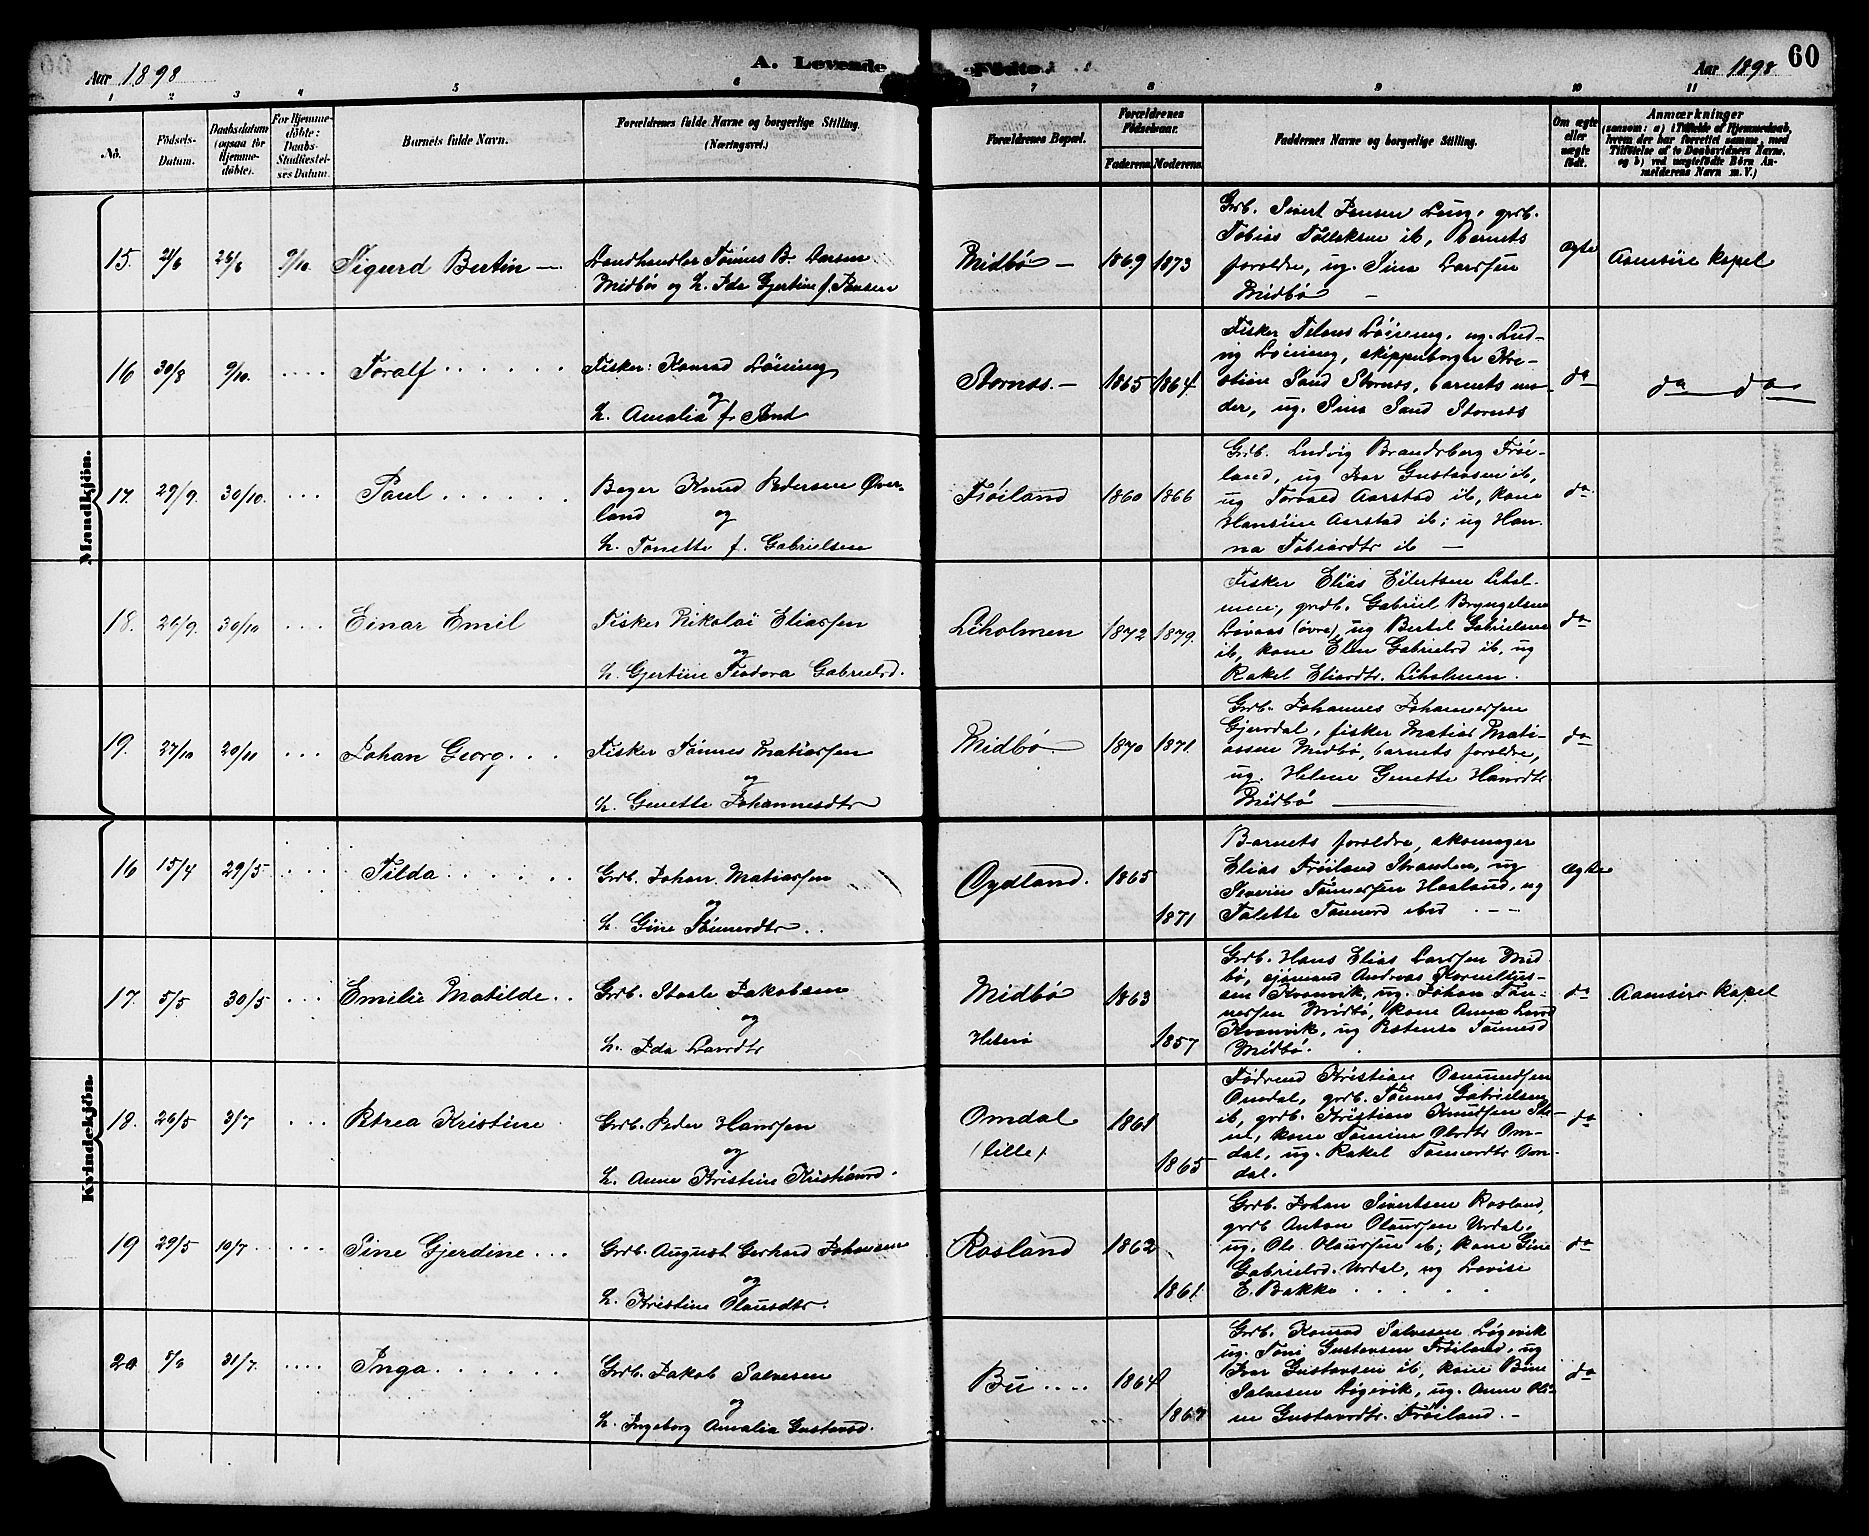 Aar 1898
A. Levende
Fødte.
Aar 1898
60
1 2 3 4 5 6 7 8 9 10 11
No.
Födsels-
Datum.
Daabsdatum
(ogsaa for
Hjemme-
döbte).
For Hjemme-
döbte:
Daabs-
Stadfæstel-
ses Datum.
Barnets fulde Navn.
Forældrenes fulde Navne og borgerlige Stilling.
(Næringsvei.)
Forældrenes Bopæl.
Forældrenes
Födselsaar.
Faderens. Moderens.
Faddernes Navne og borgerlige Stilling.
Om ægte
eller
uægte
födt.
Anmærkninger
(saasom: a) Tilfælde af Hjemmedaab,
hvem der har forrettet samme, med
Tilföielse af to Daabsvidners Navne,
og b) ved uægtefödte Börn An-
melderens Navn m. V.)
Mandkjön.
15. 26/6 9/10. Sigurd Bertin —
Landhandler Tönnes B. Larsen
Midbö og h. Ida Gjertine f. Jensen
Midbö — 1869 1873
Grb. Sivert Jensen grb.
Tobias Tollaksen ib, Barnets
forældre, ug. Sina Larssen
Midbö —
ægte Aamsire kapel
16 30/8 9/10. .... Toralf ......
Fisker: Konrad Löining
og
h. Amalia f. Sand
Stornes. — 1865 1864.
Fisker Löining, ug. Lud-
vig Löining, skipperborger Kri-
stian Sand Stornes, barnets mo-
der, ug. Sina Sand Stornes
do do do
17. 29/9. 30/10. ... Paul ......
Knud Pedersen Över-
land og
h. Tonette f. Gabrielsen
Fröiland 1860 1866
Grb. Ludvig Brandsberg Fröi-
land, ug Ivar Gustavsen ib,
ug Torvald Aarstad ib, kone
Hansine Aarstad ib; ug Han-
na Tobiasdtr ib —
do
18. 26/9. 30/10 ... Einar Emil
Fisker Nikolai Eliassen
og
h. Gjertine Teodora Gabrielsd.
Liholmen 1872 1879.
Fisker Elias Eilertsen Lihol-
men, grdb. Gabriel Bryngelsen
Lövaas (övre), ug Bertel Gabrielsen
ib, kone Elen Gabrielsd ib, ug
Rakel Eliasdtr. Liholmen.
do
19. 27/10 20/11 ... Johan Georg ...
Fisker Tönnes Matiassen
og
h. Genette Johannesdtr
Midbö. 1870 1871.
Grb. Johannes Johannessen
fisker Matias Mati-
assen Midbö, barnets forældre,
ug. Helene Genette Hansdtr
Midbö —
do
Kvindekjön.
16 15/4 29/5. ... Tilda ......
Grb. Johan Matiassen
og
h. Gine Tönnesdtr ..
Oydland. 1865
1871
Barnets forældre, skomager
Elias Fröiland Stranden, ug
Severin Tönnessen Haaland, ug
Talette Tönnesd ibid . - -
ægte
17. 5/5 30/5 ... Emilie Matilde ..
Grb. Jakobsen
og
h. Ida Larsdtr
Midbö 1863
Hiterö 1857
Grb. Hans Elias Larssen Mid-
bö, sjömand Andreas Kornelius-
sen Kvanvik, ug. Johan Tön-
nessen Midbö, kone Anna
Kvanvik, ug Tönnesd
Midbö.
do Aamsire kapel
18. 26/5 3/7 ... Petrea Kristine.
Grb. Peder Hanssen
og
h. Anne Kristine Kristiansd.
Omdal 1861
(lille). 1865
Föderaad Kristian Osmundsen
Omdal, grdb. Tönnes Gabrielsen
ib, grdb. Kristian Knudsen
kone Tomine Om-
dal, ug. Rakel Tönnesdtr Om-
dal.
do
19 29/5 10/7 ... Sine Gjerdine ...
Grb. August Gerhard Johansen
og
h. Kristine Olausdtr.
Rosland 1862
1861
Grb. Johan Sivertsen Rosland,
grdb Anton Olaussen Urdal,
ug. Ole Olaussen ib; kone Gine
Gabrielsd. Urdal, ug Lovise
E. Bakke . . . . .
do
20 5/6 31/7. .... Inga .....
Grb. Jakob Salvesen
og
h. Ingeborg Amalia Gustavsd.
Bu .... 1864
1867
Grb. Konrad Salvesen Lögevik
ug. Toni Gustavsen Fröiland, ug
Ivar Gustavsen ib, kone
Salvesen Lögevik, ug. Anne Oli-
ne Gustavsdtr. Fröiland. —
do